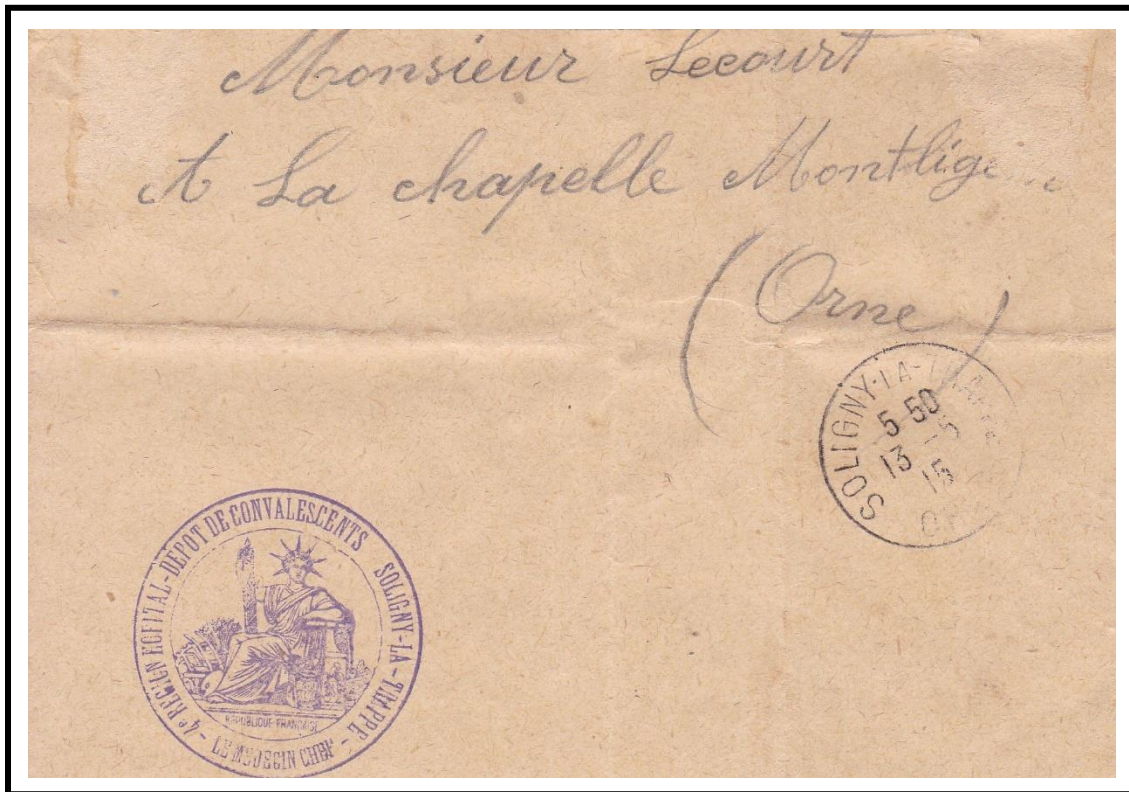 Monsieur Lecourt
A La chapelle
(Orne)
SOLIGNY-LA-TRAPPE
5 50
13 -5
15
4e REGION HOPITAL-DEPOT DE CONVALESCENTS SOLIGNY-LA-TRAPPE -
- LE MEDECIN CHEF -
REPUBLIQUE FRANCAISE